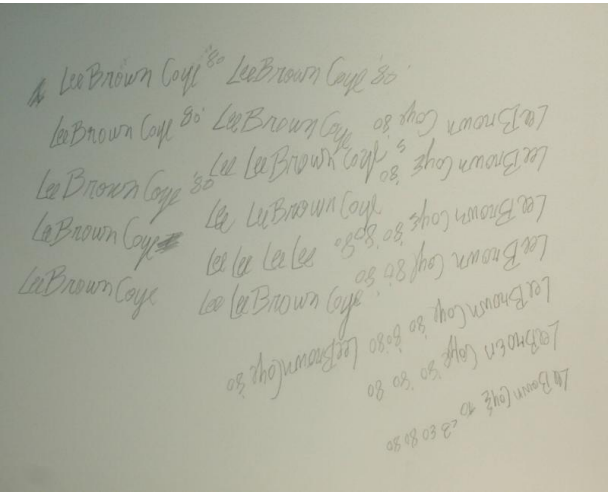 Lee Brown Coye '80 Lee Brown Coye '80
Lee Brown Coye '80 Lee Brown Coye
Lee Brown Coye '80 Lee Lee Brown Coye '
Lee Brown Coye Lee Lee Brown Coye
Lee Brown Coye Lee Lee Lee Lee
Lee Lee Brown Coye
Lee Brown Coye 80
Lee Brown Coye '80
Lee Brown Coye 80 80 80
Lee Brown Coye 80 80
Lee Brown Coye 80 80 80 Lee Brown Coye 80
Lee Brown Coye 80 80 80
Lee Brown Coye 80 80 80